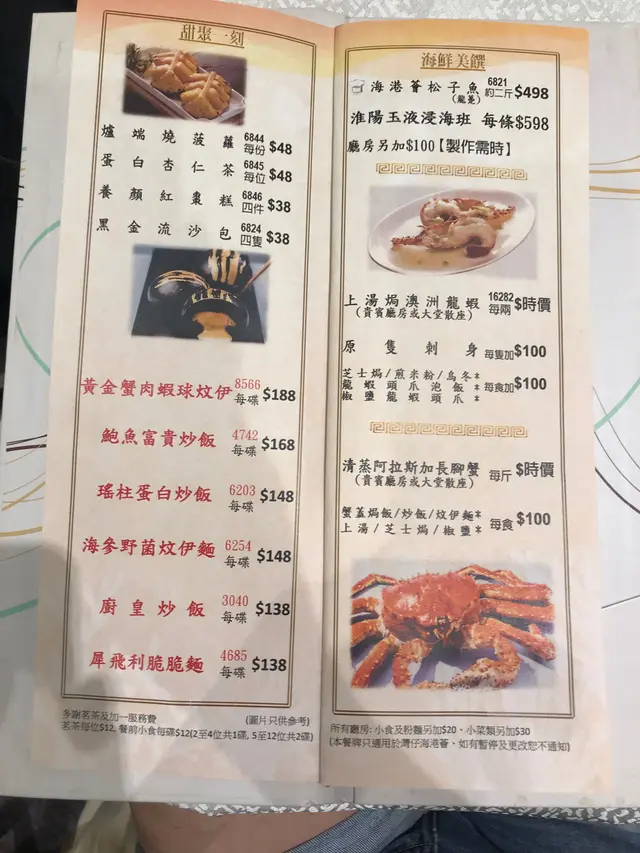 甜聚一刻
爐端燒菠蘿 6844 每份 $48
蛋白杏仁茶 6845 每位 $48
養顏紅棗糕 6846 四件 $38
黑金流沙包 6824 四隻 $38
黃金蟹肉蝦球炆伊 8566 每碟 $188
鮑魚富貴炒飯 4742 每碟 $168
瑤柱蛋白炒飯 6203 每碟 $148
海參野菌炆伊麵 6254 每碟 $148
廚皇炒飯 3040 每碟 $138
犀飛利脆脆麵 4685 每碟 $138
多謝茗茶及加一服務費 (圖片只供參考)
茗茶每位$12, 餐前小食每碟$12(2至4位共1碟, 5至12位共2碟)
海鮮美饌
海港薈松子魚 (龍躉) 6821 約二斤 $498
淮陽玉液浸海班 每條$598
廳房另加$100【製作需時】
上湯焗澳洲龍蝦 16282 每兩 $時價
(貴賓廳房或大堂散座)
原隻刺身 每隻加$100
芝士焗/煎米粉/烏冬*
龍蝦頭爪泡飯* 每食加$100
椒鹽龍蝦頭爪*
清蒸阿拉斯加長腳蟹 每斤 $時價
(貴賓廳房或大堂散座)
蟹蓋焗飯/炒飯/炆伊麵* 每食 $100
上湯/芝士焗/椒鹽*
所有廳房: 小食及粉麵另加$20、小菜類另加$30
(本餐牌只適用於灣仔海港薈、如有暫停及更改恕不通知)